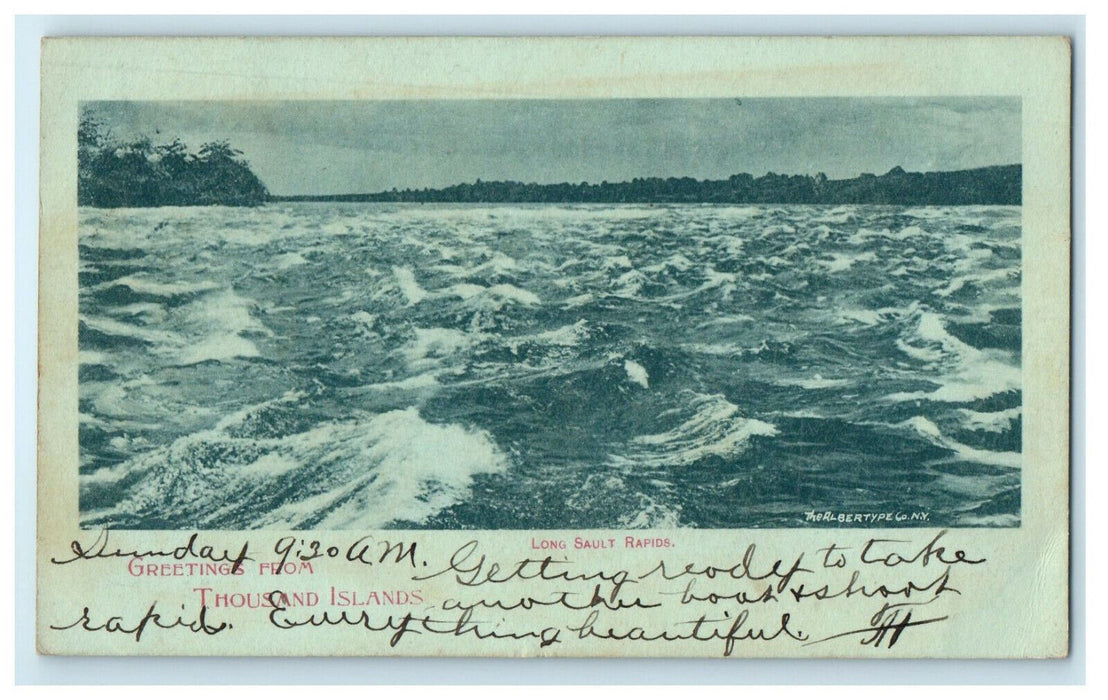 The Albertype Co. N.Y.
Long Sault Rapids.
Greetings from
Thousand Islands
Sunday 9:30 AM. Getting ready to take
another boat & shoot
rapid. Everything beautiful.